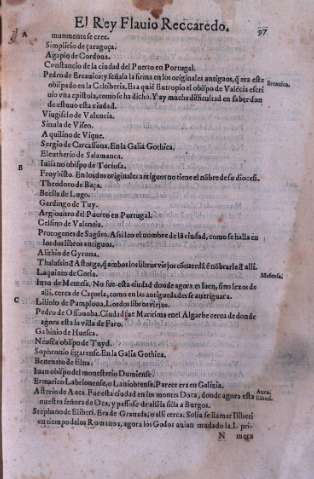 El Rey Flauio Reccaredo. 97
A
manamente se cree.
Simplicio de Çaragoça.
Agapio de Cordoua.
Constancio de la ciudad del Puerto en Portugal.
Pedro de Ercauica; y señala la firma en los originales antiguos, q̃ era este
obispado en la Celtiberia. Era quiẽ Eutropio el obispo de Valẽcia escri
uio vna epistola, como se ha dicho. Y ay mucha dificultad en saber dan
de estuuo esta ciudad.
Vigiscio de Valencia.
Sinala de Viseo.
Aquilino de Vique.
Sergio de Carcassona. En la Galia Gothica.
Eleutherio de Salamanca.
B
Iuliano obispo de Tortosa.
Froyisclo. En los dos originales antiguos no tiene el nõbre de su diocesi.
Theodoro de Baça.
Becila de Lugo.
Gardingo de Tuy.
Argiouiro del Puerto en Portugal.
Celsino de Valencia.
Protogenes de Sagũto. Assi leo el nombre de la ciudad, como se halla en
los dos libros antiguos.
Alicio de Gyrona.
Laquinto de Coria.
alli cerca de Caparra, como en las antiguedades se aueriguara.
C
Liliolo de Pamplona. Los dos libros viejos.
Pedro de Ossonoba. Ciudad fue Maritima en el Algarbe cerca de donde
agora esta la villa de Faro.
Gabinio de Huesca.
Neufila obispo de Tuyd.
Sophronio Egarense. En la Galia Gothica.
Benenato de Elna.
Iuan obispo del monesterio Dumiense.
Ermarico Labelonense, o Laniobrense. Parece era en Galizia.
Asterio de Auca. Fue esta ciudad en los montes Doca, donde agora esta
nuestra señora de Oca, y passose de alli la silla a Burgos.
Stephano de Eliberi. Era de Granada, o alli cerca. Solia se llamar Illiberi
en tiempo de los Romanos, agora los Godos auian mudado la I. pri-
N mera